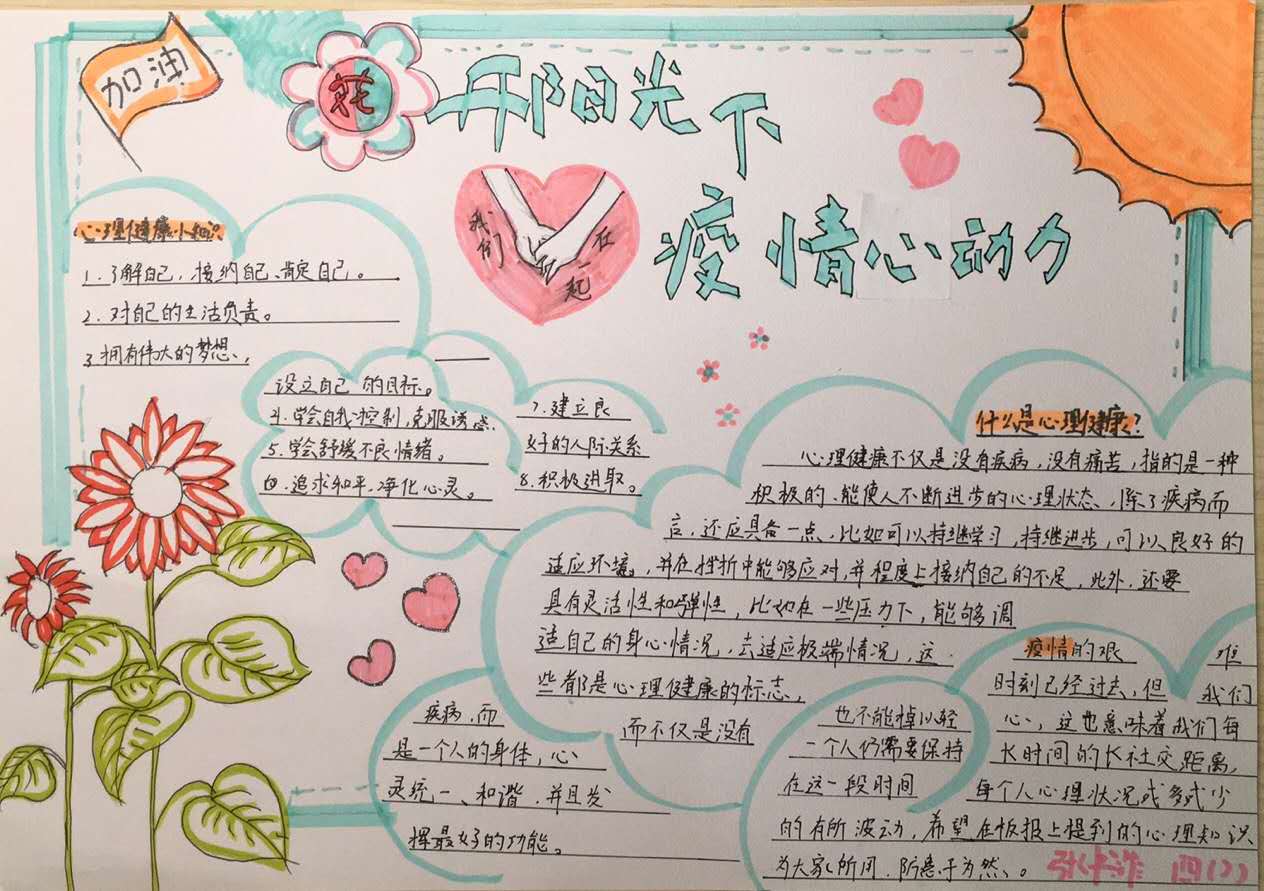 加油
开阳光下
疫情心动力
我们
在一起
心理健康小知识
1.了解自己，接纳自己、肯定自己。
2.对自己的生活负责。
3.拥有伟大的梦想、，
设立自己 的目标。
4.学会自我控制，克服诱惑.
5.学会舒缓不良情绪。
四.追求和平，净化心灵。
7.建立良
好的人际关系
8.积极进取。
什么是心理健康？
心理健康不仅是没有疾病，没有痛苦，指的是一种
积极的、能使人不断进步的心理状态、，除了疾病而
言，还应具备一点，比如可以持继学习，持继进步，可以良好的
适应环境。，并在挫折中能够应对，并程度上接纳自己的不足，此外，还要
具有灵活性和弹性，比如在一些压力下，能够调
适自己的身心情况，去适应极端情况，这
些都是心理健康的标志，
而不仅是没有
疾病，而
是一个人的身体，心
灵统一、和谐，并且发
挥最好的功能。
疫情的艰 难
时刻已经过去，但 我们
也不能掉以轻 心，这也意味着我们每
一个人仍需要保持 长时间的长社交距离，
在这一段时间 每个人心理状况或多或少
的有所波动，希望在板报上提到的心理知识
为大家所用，防患于为然、。